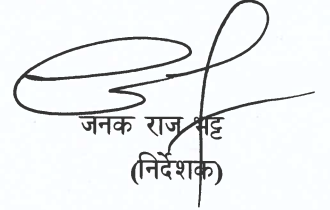 जनक राज भट्ट
(निर्देशक)